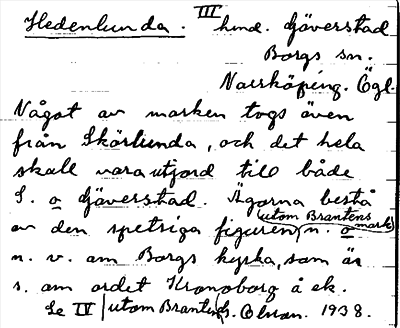 Hedenlunda. III hmd. Gäverstad
Borgs sn.
Norrköping. Ögl.
Något av marken togs även
från Skärlunda, och det hela
skall vara utjord till både
S. o Gäverstad. Ägorna bestå
(utom Brantens mark)
av den spetsiga figuren n. o
n. v. om Borgs kyrka, som är
s. om ordet Kronoborg å ek.
Se IV (utom Branten) G. Olsson. 1938.